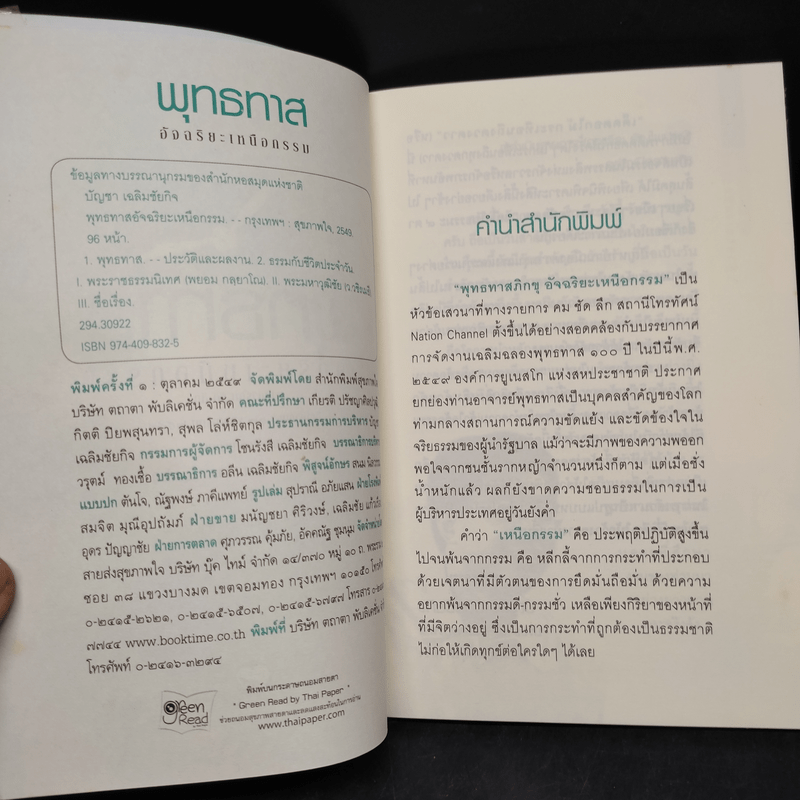 พุทธทาส
อัจฉริยะเหนือกรรม
ข้อมูลทางบรรณานุกรมของสำนักหอสมุดแห่งชาติ
บัญชา เฉลิมชัยกิจ
พุทธทาสอัจฉริยะเหนือกรรม. -- กรุงเทพฯ : สุขภาพใจ, 2549.
96 หน้า.
1. พุทธทาส. -- ประวัติและผลงาน. 2. ธรรมกับชีวิตประจำวัน
I. พระราชธรรมนิเทศ (พยอม กลฺยาโณ). II. พระมหาวุฒิชัย (ว.วชิรเมธี)
III. ชื่อเรื่อง.
294.30922
ISBN 974-409-832-5
พิมพ์ครั้งที่ ๑ : ตุลาคม ๒๕๔๙ จัดพิมพ์โดย สำนักพิมพ์สุขภาพใจ
บริษัท ตถาตา พับลิเคชั่น จำกัด คณะที่ปรึกษา เกียรติ ปรัชญาศิลปวุฒิ
กิตติ ปิยพสุนทรา, สุพล โล่ห์ชิตกุล ประธานกรรมการบริหาร บัญชา
เฉลิมชัยกิจ กรรมการผู้จัดการ โชนรังสี เฉลิมชัยกิจ บรรณาธิการบริหาร
วรุตม์ ทองเชื้อ บรรณาธิการ อลีน เฉลิมชัยกิจ พิสูจน์อักษร สนม
แบบปก ตันโจ, ณัฐพงษ์ ภาคีแพทย์ รูปเล่ม สุปราณี อภัยแสน
สมจิต มุณีอุปถัมภ์ ฝ่ายขาย มนัญชยา ศิริวงษ์, เฉลิมชัย
อุดร ปัญญาชัย ฝ่ายการตลาด ศุภวรรณ คุ้มภัย, อัคคณัฐ ชุมนุม
สายส่งสุขภาพใจ บริษัท บุ๊ค ไทม์ จำกัด ๑๔/๓๗๐ หมู่ ๑๐ ถ. พระราม
ซอย ๓๘ แขวงบางมด เขตจอมทอง กรุงเทพฯ ๑๐๑๕๐
๐-๒๔๑๕-๒๖๒๑, ๐-๒๔๑๕-๖๕๐๗, ๐-๒๔๑๕-๖๗๙๗ โทรสาร
๗๗๔๔ www.booktime.co.th พิมพ์ที่ บริษัท ตถาตา พับลิเคชั่น จำกัด
โทรศัพท์ ๐-๒๔๑๖-๓๒๙๔
Green
Read
พิมพ์บนกระดาษถนอมสายตา
" Green Read by Thai Paper "
ช่วยถนอมสุขภาพสายตาและลดแสงสะท้อนในการอ่าน
www.thaipaper.com
คำนำสำนักพิมพ์
"พุทธทาสภิกขุ อัจฉริยะเหนือกรรม" เป็น
หัวข้อเสวนาที่ทางรายการ คม ชัด ลึก สถานีโทรทัศน์
Nation Channel ตั้งขึ้นได้อย่างสอดคล้องกับบรรยากาศ
การจัดงานเฉลิมฉลองพุทธทาส ๑๐๐ ปี ในปีนี้พ.ศ.
๒๕๔๙ องค์การยูเนสโก แห่งสหประชาชาติ ประกาศ
ยกย่องท่านอาจารย์พุทธทาสเป็นบุคคลสำคัญของโลก
ท่ามกลางสถานการณ์ความขัดแย้ง และขัดข้องใจใน
จริยธรรมของผู้นำรัฐบาล แม้ว่าจะมีภาพของความพออก
พอใจจากชนชั้นรากหญ้าจำนวนหนึ่งก็ตาม แต่เมื่อชั่ง
น้ำหนักแล้ว ผลก็ยังขาดความชอบธรรมในการเป็น
ผู้บริหารประเทศอยู่วันยังค่ำ
คำว่า "เหนือกรรม" คือ ประพฤติปฏิบัติสูงขึ้น
ไปจนพ้นจากกรรม คือ หลีกลี้จากการกระทำที่ประกอบ
ด้วยเจตนาที่มีตัวตนของการยึดมั่นถือมั่น ด้วยความ
อยากพ้นจากกรรมดี-กรรมชั่ว เหลือเพียงกิริยาของหน้าที่
ที่มีจิตว่างอยู่ ซึ่งเป็นการกระทำที่ถูกต้องเป็นธรรมชาติ
ไม่ก่อให้เกิดทุกข์ต่อใครใดๆ ได้เลย